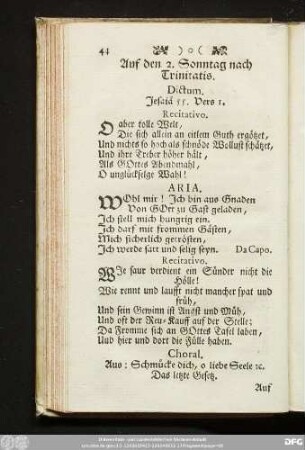 44 ) o (
Auf den 2. Sonntag nach
Trinitatis.
Dictum.
Jesaiä 55. Vers 1.
Recitativo.
O aber tolle Welt,
Die sich allein an eitlem Guth ergötzet,
Und nichts so hoch als schnöde Wollust schätzet,
Und ihre Treber höher hält,
Als GOttes Abendmahl,
O unglückselge Wahl!
ARIA.
WOhl mir! Ich bin aus Gnaden
Von GOtt zu Gast geladen,
Ich stell mich hungrig ein.
Ich darf mit frommen Gästen,
Mich sicherlich getrösten,
Ich werde satt und selig seyn. Da Capo.
Recitativo.
WIe saur verdient ein Sünder nicht die
Hölle!
Wie rennt und laufft nicht mancher spat und
früh,
Und sein Gewinn ist Angst und Müh,
Und oft der Reu-Kauff auf der Stelle;
Da Fromme sich an GOttes Tafel laben,
Und hier und dort die Fülle haben.
Choral.
Aus: Schmücke dich, o liebe Seele ꝛc.
Das letzte Gesetz.
Auf
DFG